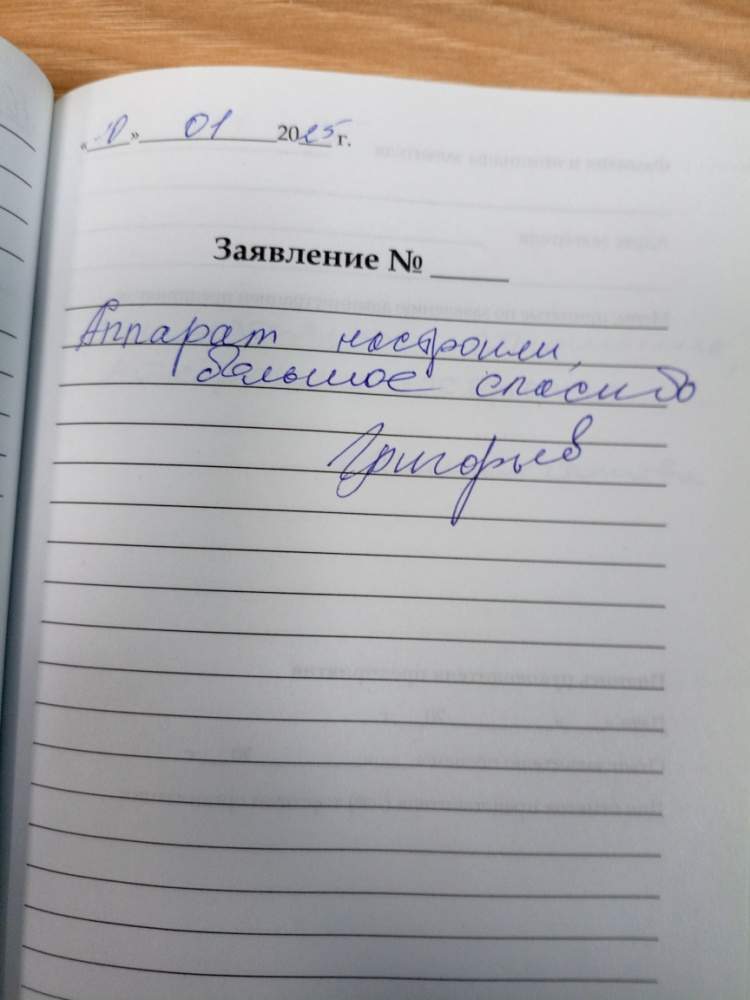 «10» 01 2025 г.
Заявление № ____
Аппарат настроили,
большое спасибо
Григорьев